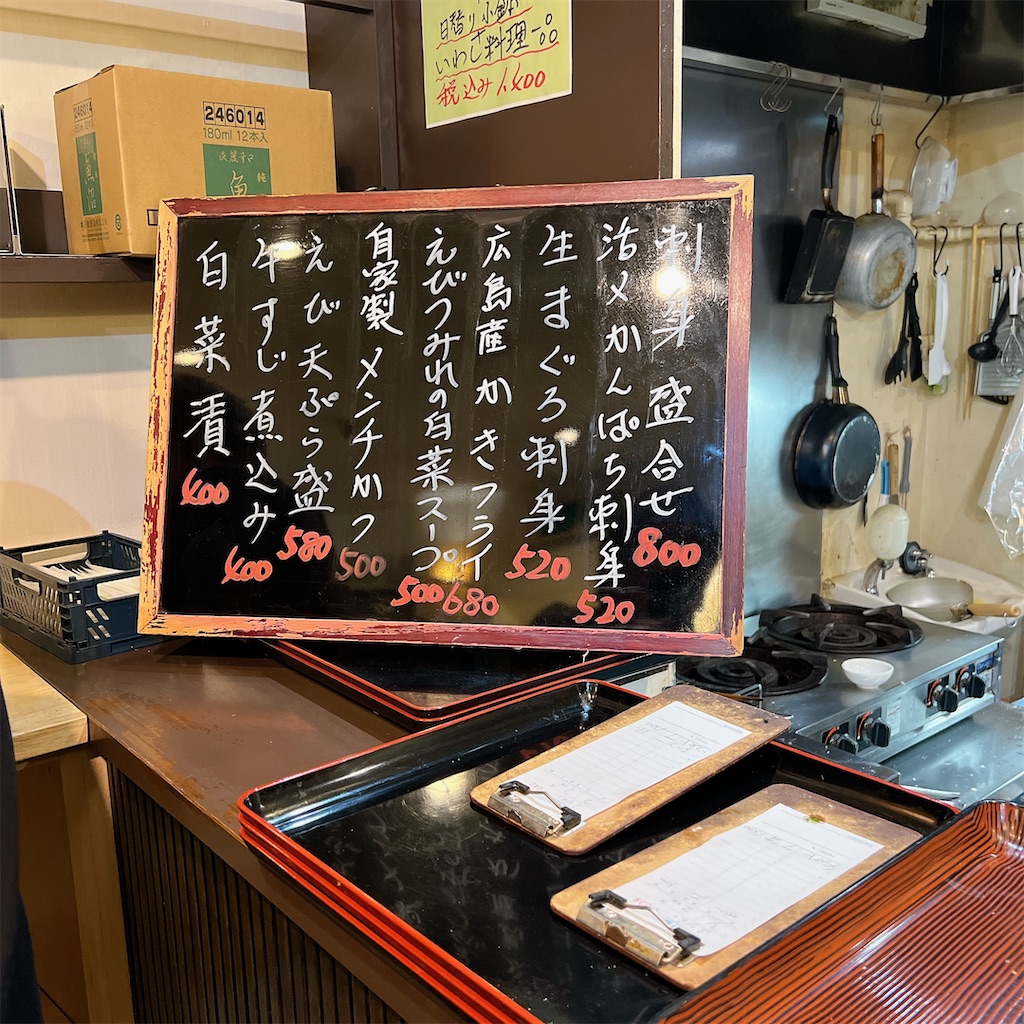 いわし料理
税込み1,400
246014
180ml 12本入
淡麗辛口
純
魚沼
刺身 盛合せ 800
活〆かんぱち刺身 520
生まぐろ刺身 520
広島産かきフライ 680
えびつみれの白菜スープ 500
自家製 メンチカツ 500
えび天ぷら盛 580
牛すじ煮込み 400
白菜漬 400